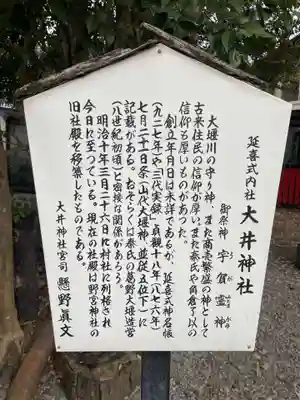 延喜式内社 大井神社
御祭神 宇賀霊神
うがのみたまのかみ
大堰川の守り神、また商売繁盛の神として
古来住民の信仰が厚い。また秦氏や角倉了以の
信仰も厚いものがあった。
創立年月日は未詳であるが、延喜式神名帳
(九二七年)や三代実録(貞観十八年(八七六年)
七月二十一日条「山代大堰神、並従五位下」に
記載がある。おそらくは秦氏の葛野大堰造営
(八世紀初頃)と密接な関係があろう。
明治十年三月二十六日に村社に列格され
今日に至っている。現在の社殿は野宮神社の
旧社殿を移築したものである。
大井神社宮司 懸野眞文